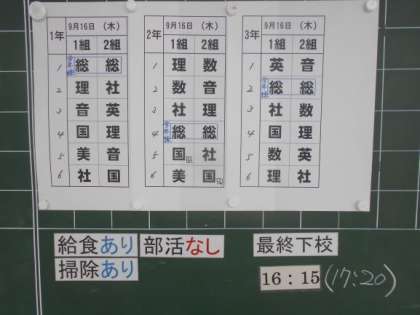 1年 9月16日 (木)
1組 2組
1 総 総
2 理 社
3 音 英
4 国 理
5 美 音
6 社 国
2年 9月16日 (木)
1組 2組
1 理 数
2 数 音
3 社 理
4 総 総
5 国 社
6 美 国
3年 9月16日 (木)
1組 2組
1 英 音
2 総 総
3 社 数
4 国 国
5 数 英
6 理 社
給食あり 部活なし 最終下校
掃除あり 16:15 (17:20)